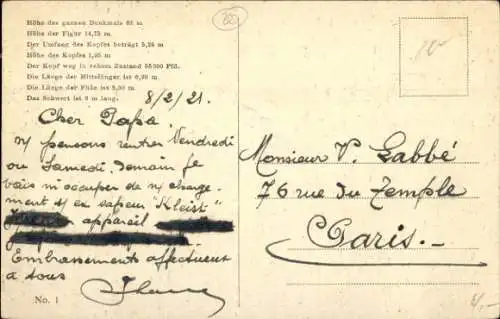 Höhe des ganzen Denkmals 63 m
Höhe der Figur 14,75 m.
Der Umfang des Kopfes beträgt 5,25 m
Höhe des Kopfes 1,95 m.
Der Kopf weg in rohem Zustand 55 000 Pfd.
Die Länge der Mittelfinger ist 0,90 m
Die Länge der Füße ist 3,50 m
Das Schwert ist 8 m lang.
8/2/21.
Cher Papa.
n/ pensons rentrer Vendredi
ou Samedi. demain je
vais m'occuper de n/ charge-
ment s/ ex vapeur "Kleist"
appareil
Embrassements affectueux
à tous
No. 1
Monsieur V. Labbé
76 rue du Temple
Paris.